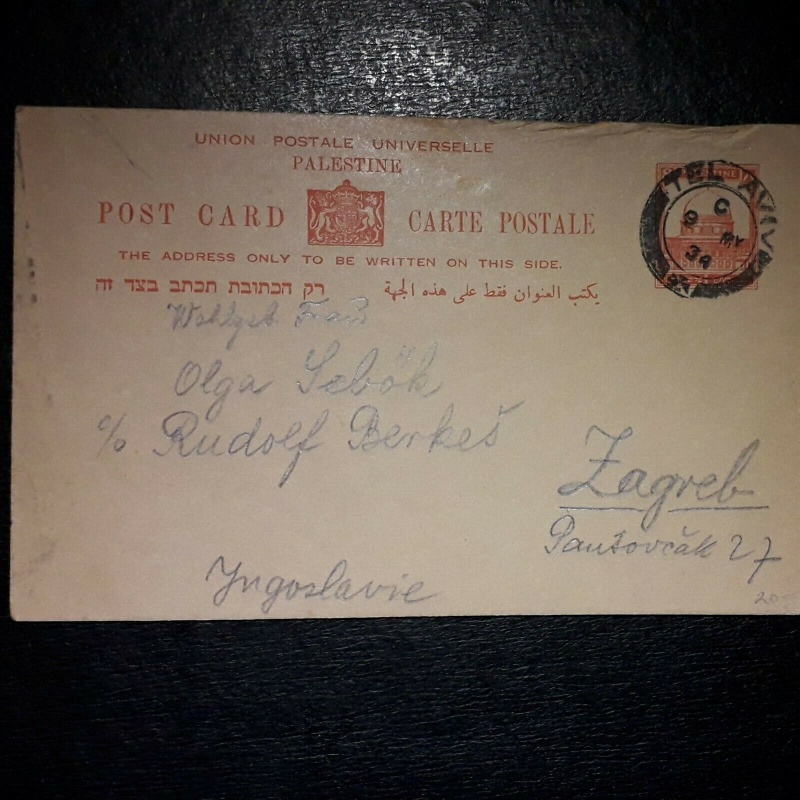 UNION POSTALE UNIVERSELLE
PALESTINE
POST CARD CARTE POSTALE
THE ADDRESS ONLY TO BE WRITTEN ON THIS SIDE.
רק הכתובת תכתב בצד זה يكتب العنوان فقط على هذه الجهة
TEL AVIV
C
9 MY
34
Wohlgeb. Frau
Olga Sebök
c/o Rudolf Berkeš
Zagreb
Pantovčak 27
Jugoslavie
20-